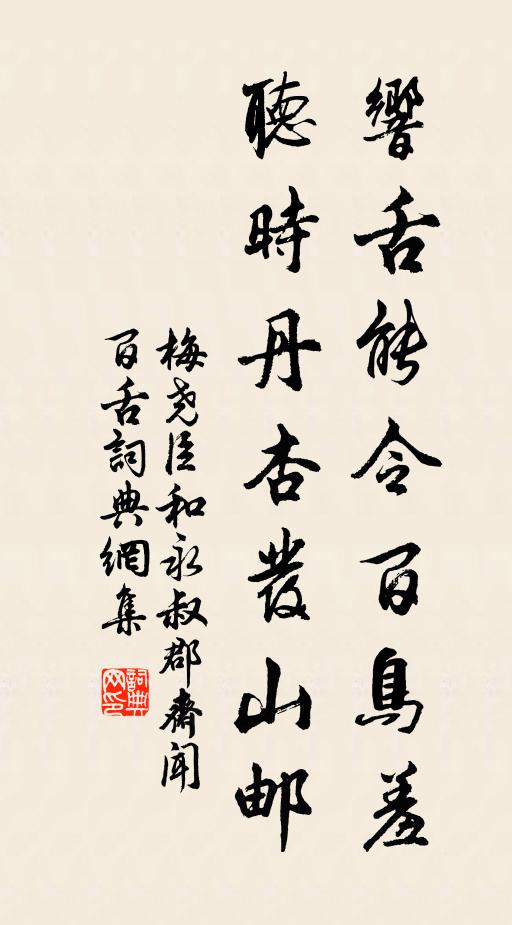 響舌能令百鳥羞
聽時丹杏發山邮
梅堯臣和永叔郡齋聞
百舌詞典網集
詞典网印